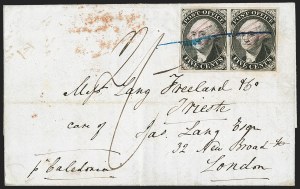 POST OFFICE POST OFFICE
FIVE CENTS FIVE CENTS
Messrs Lang Freeland & Co
Trieste
care of Jas. Lang Esqr
32 New Broad St
London
pr Caledonia